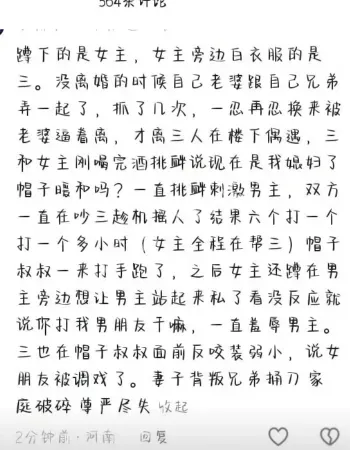 564条评论
蹲下的是女主，女主旁边白衣服的是
三。没离婚的时候自己老婆跟自己兄弟
弄一起了，抓了几次，一忍再忍换来被
老婆逼着离，才离三人在楼下偶遇，三
和女主刚喝完酒挑衅说现在是我媳妇了
帽子暖和吗？一直挑衅刺激男主，双方
一直在吵三趁机摇人了结果六个打一个
打一个多小时（女主全程在帮三）帽子
叔叔一来打手跑了，之后女主还蹲在男
主旁边想让男主站起来私了看没反应就
说你打我男朋友干嘛，一直羞辱男主。
三也在帽子叔叔面前反咬装弱小，说女
朋友被调戏了。妻子背叛兄弟捅刀 家
庭破碎 尊严尽失 收起
2分钟前·河南 回复